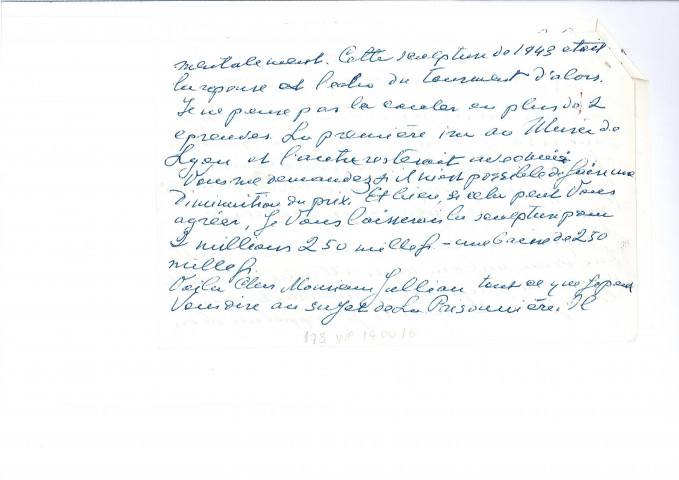 mentalement. Cette sculpture de 1943 était
la reponse et l'echo du tourment d'alors.
Je ne pense pas la couler en plus de 2
epreuves. La première ira au Musée de
Lyon et l'autre resterait avec
Vous me demandez s'il m'est possible de faire une
Diminution du prix. Et bien, si cela peut Vous
agréer, je Vous laisserais la sculpture pour
2 millions 250 mille f. - une baisse de 250
mille f.
Voilà Cher Monsieur Jullian tout ce que je peux
Vous dire au sujet de La Prisonnière. Je